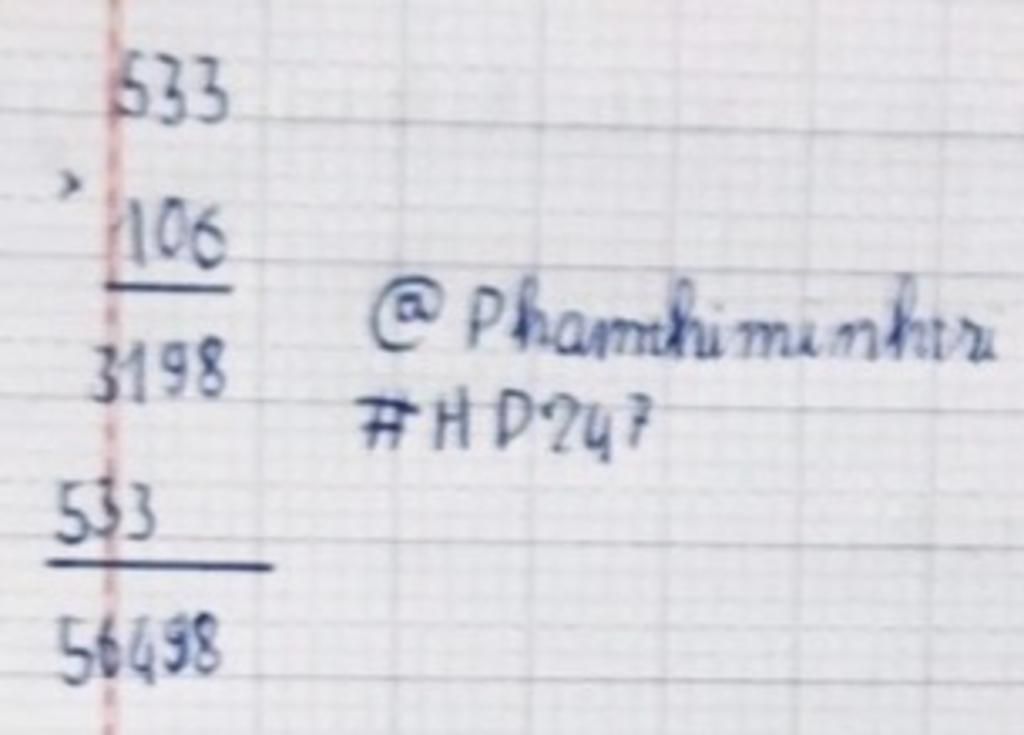 533
×
106
3198
@Phamthiminhtri
#HD247
533
56498